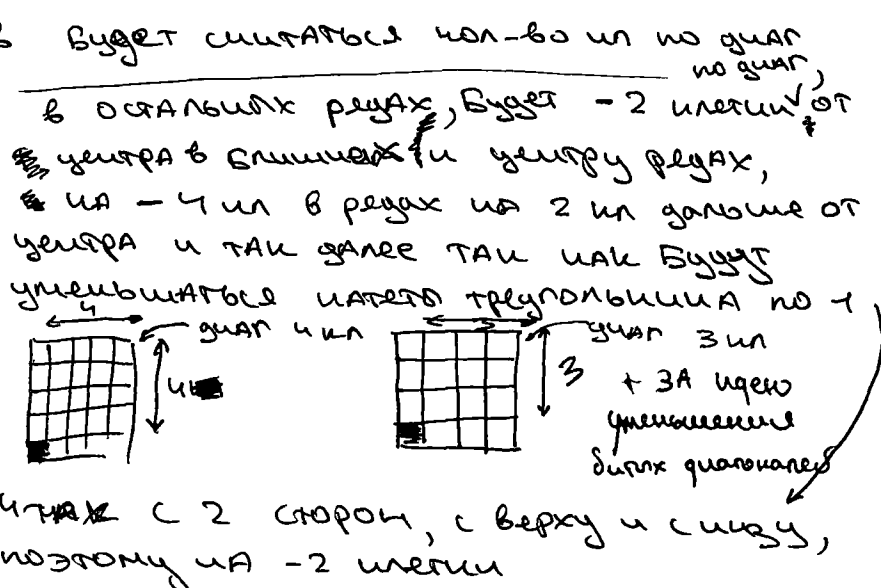 в Будет считаться кол-во кл по диаг
по диаг,
в остальных рядах, Будет -2 клетки от
центра в ближних к центру рядах,
на -4 кл в рядах на 2 кл дальше от
центра и так далее так как Будут
уменьшаться катеты треугольника по 1
4 диаг 4 кл 3 диаг 3 кл
4 3 + за идею
уменьшения
битых диагоналей
с 2 сторон, с верху и снизу,
поэтому на -2 клетки